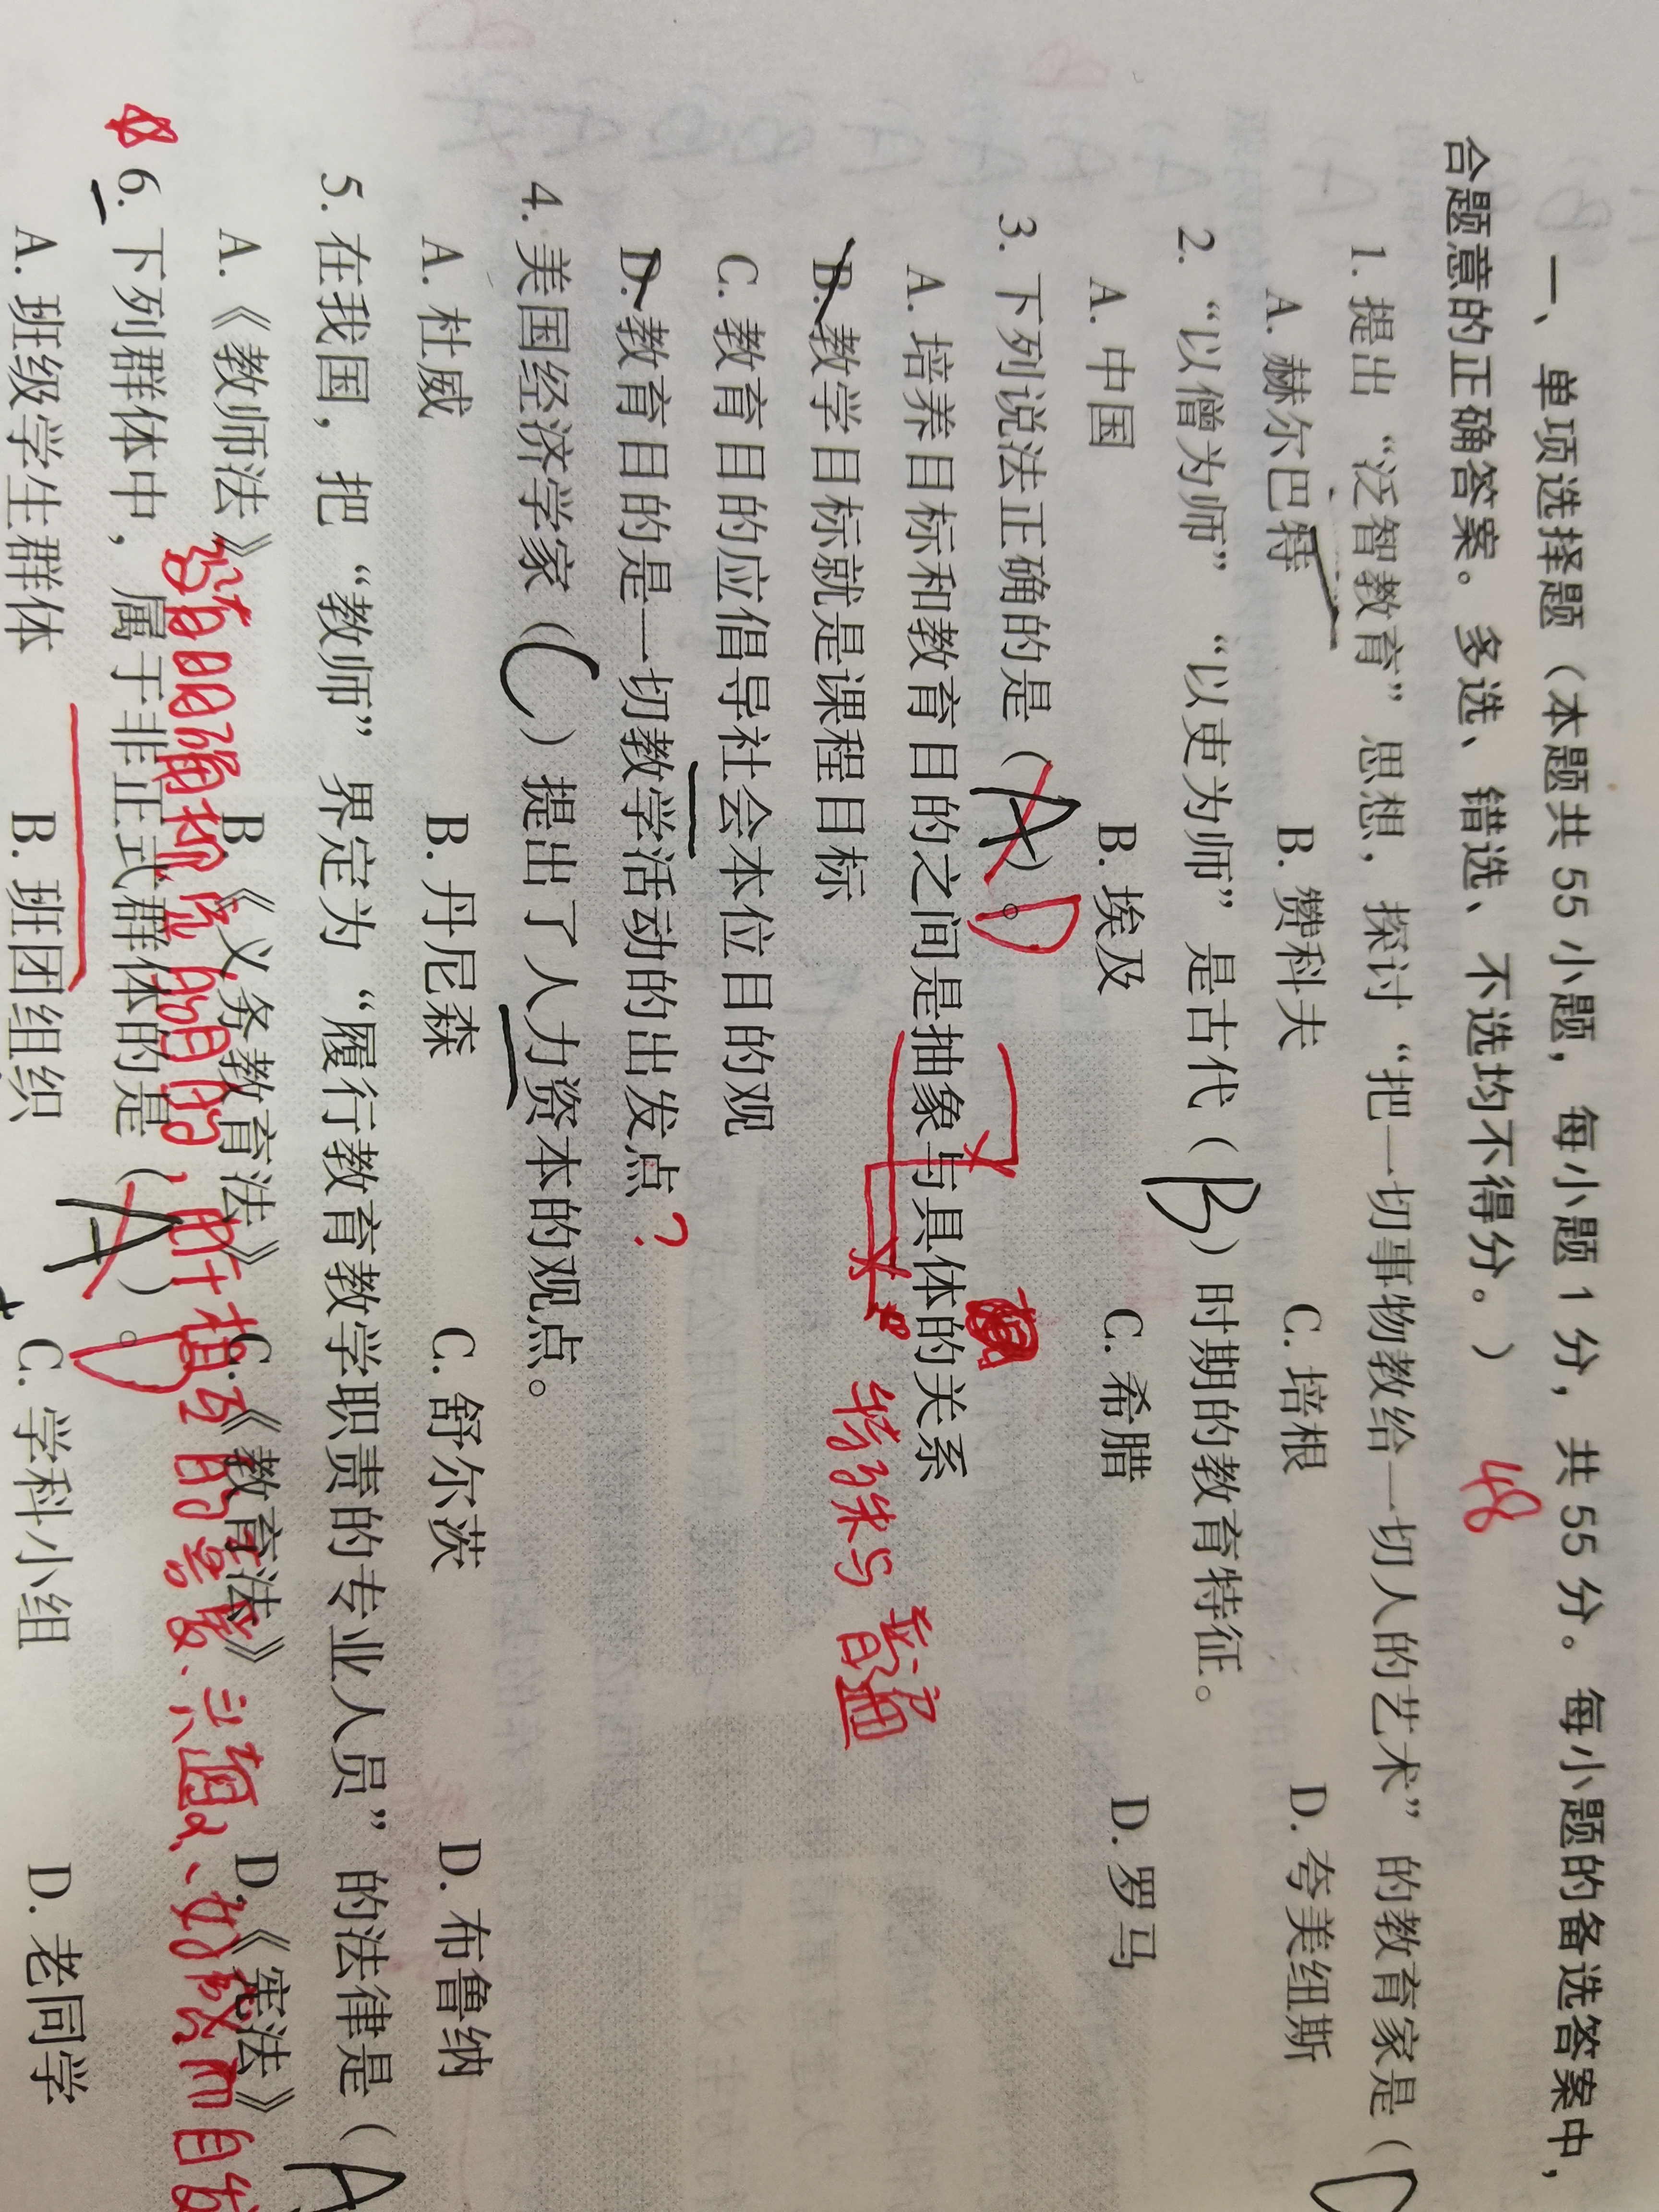 一、单项选择题（本题共 55 小题，每小题 1 分，共 55 分。每小题的备选答案中，
合题意的正确答案。多选、错选、不选均不得分。）
48
1. 提出“泛智教育”思想，探讨“把一切事物教给一切人的艺术”的教育家是（D
A. 赫尔巴特 B. 赞科夫 C. 培根 D. 夸美纽斯
2. “以僧为师”“以吏为师”是古代（B）时期的教育特征。
A. 中国 B. 埃及 C. 希腊 D. 罗马
3. 下列说法正确的是（A）。D
A. 培养目标和教育目的之间是抽象与具体的关系
特殊与普遍
B. 教学目标就是课程目标
C. 教育目的应倡导社会本位目的观
D. 教育目的是一切教学活动的出发点？
4. 美国经济学家（C）提出了人力资本的观点。
A. 杜威 B. 丹尼森 C. 舒尔茨 D. 布鲁纳
5. 在我国，把“教师”界定为“履行教育教学职责的专业人员”的法律是（A
A.《教师法》 B.《义务教育法》 C.《教育法》 D.《宪法》
没有明确规定的目的，由于相互的喜爱、兴趣
6. 下列群体中，属于非正式群体的是（A）。D
A. 班级学生群体 B. 班团组织 C. 学科小组 D. 老同学